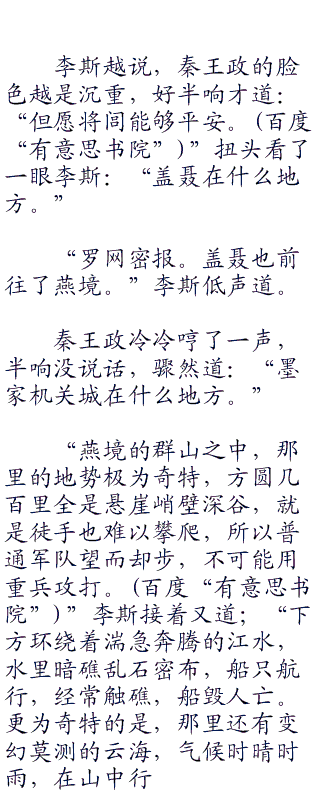 李斯越说，秦王政的脸
色越是沉重，好半响才道：
“但愿将闾能够平安。(百度
“有意思书院”)”扭头看了
一眼李斯：“盖聂在什么地
方。”
“罗网密报。盖聂也前
往了燕境。”李斯低声道。
秦王政冷冷哼了一声，
半响没说话，骤然道：“墨
家机关城在什么地方。”
“燕境的群山之中，那
里的地势极为奇特，方圆几
百里全是悬崖峭壁深谷，就
是徒手也难以攀爬，所以普
通军队望而却步，不可能用
重兵攻打。(百度“有意思书
院”)”李斯接着又道；“下
方环绕着湍急奔腾的江水，
水里暗礁乱石密布，船只航
行，经常触礁，船毁人亡。
更为奇特的是，那里还有变
幻莫测的云海，气候时晴时
雨，在山中行